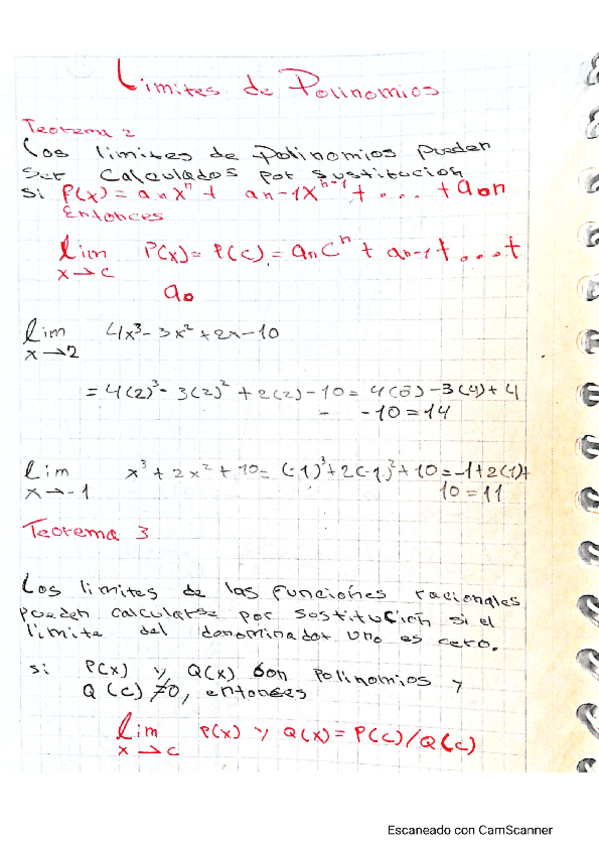 Limites de Polinomios
Teorema 2
Los limites de Polinomios pueden
ser Calculados por sustitucion
si P(x) = aₙxⁿ + an-1xⁿ⁻¹ + ... + a₀n
Entonces
lim P(x) = P(c) = aₙcⁿ + an-1+...+
x→c
a₀
lim 4x³-3x²+2x-10
x→2
= 4(2)³- 3(2)² + 2(2) - 10 = 4(8) - 3(4) + 4
- -10 = 14
lim x³ + 2x² + 10 = (-1)³+2(-1)²+10 = -1+2(1)+
x→-1 10 = 11
Teorema 3
Los limites de las funciones racionales
pueden calcularse por sustitución si el
limite del donominador uno es cero.
si P(x) y Q(x) son polinomios y
Q(c) ≠0, entonces
lim P(x) y Q(x) = P(c)/Q(c)
x→c
Escaneado con CamScanner